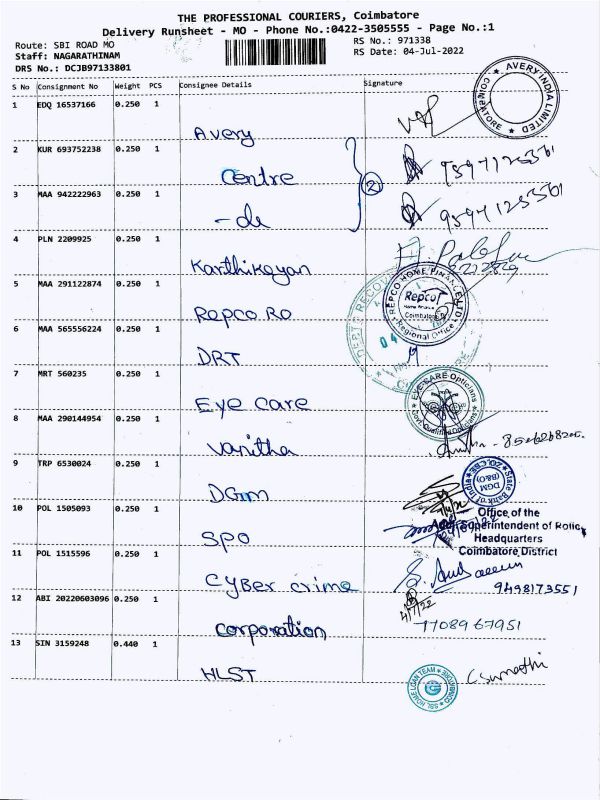 THE PROFESSIONAL COURIERS, Coimbatore
Delivery Runsheet - MO - Phone No.:0422-3505555 - Page No.:1
Route: SBI ROAD MO
RS No.: 971338
Staff: NAGARATHINAM
RS Date: 04-Jul-2022
DRS No.: DCJB97133801
S No Consignment No Weight PCS Consignee Details Signature
1 EDQ 16537166 0.250 1
Avery
AVERY INDIA LIMITED
COIMBATORE
2 KUR 693752238 0.250 1
Centre
2
3 MAA 942222963 0.250 1
- de
4 PLN 2209925 0.250 1
Karthikeyan
5 MAA 291122874 0.250 1
Repco Ro
REPCO HOME FINANCE LTD
Repco
Home Finance
Coimbatore
Regional Office
6 MAA 565556224 0.250 1
DRT
04
7 MRT 560235 0.250 1
Eye care
EYE-CARE Opticians
8 MAA 290144954 0.250 1
Vanitha
9 TRP 6530024 0.250 1
DGM
State Bank of India
DGM
(B&O)
10 POL 1505093 0.250 1
SPO
Office of the
Superintendent of Police
Headquarters
Coimbatore District
11 POL 1515596 0.250 1
Cyber crime
9498173551
12 ABI 20220603096 0.250 1
Corporation
7708967951
13 SIN 3159248 0.440 1
HLST
C Sumathi